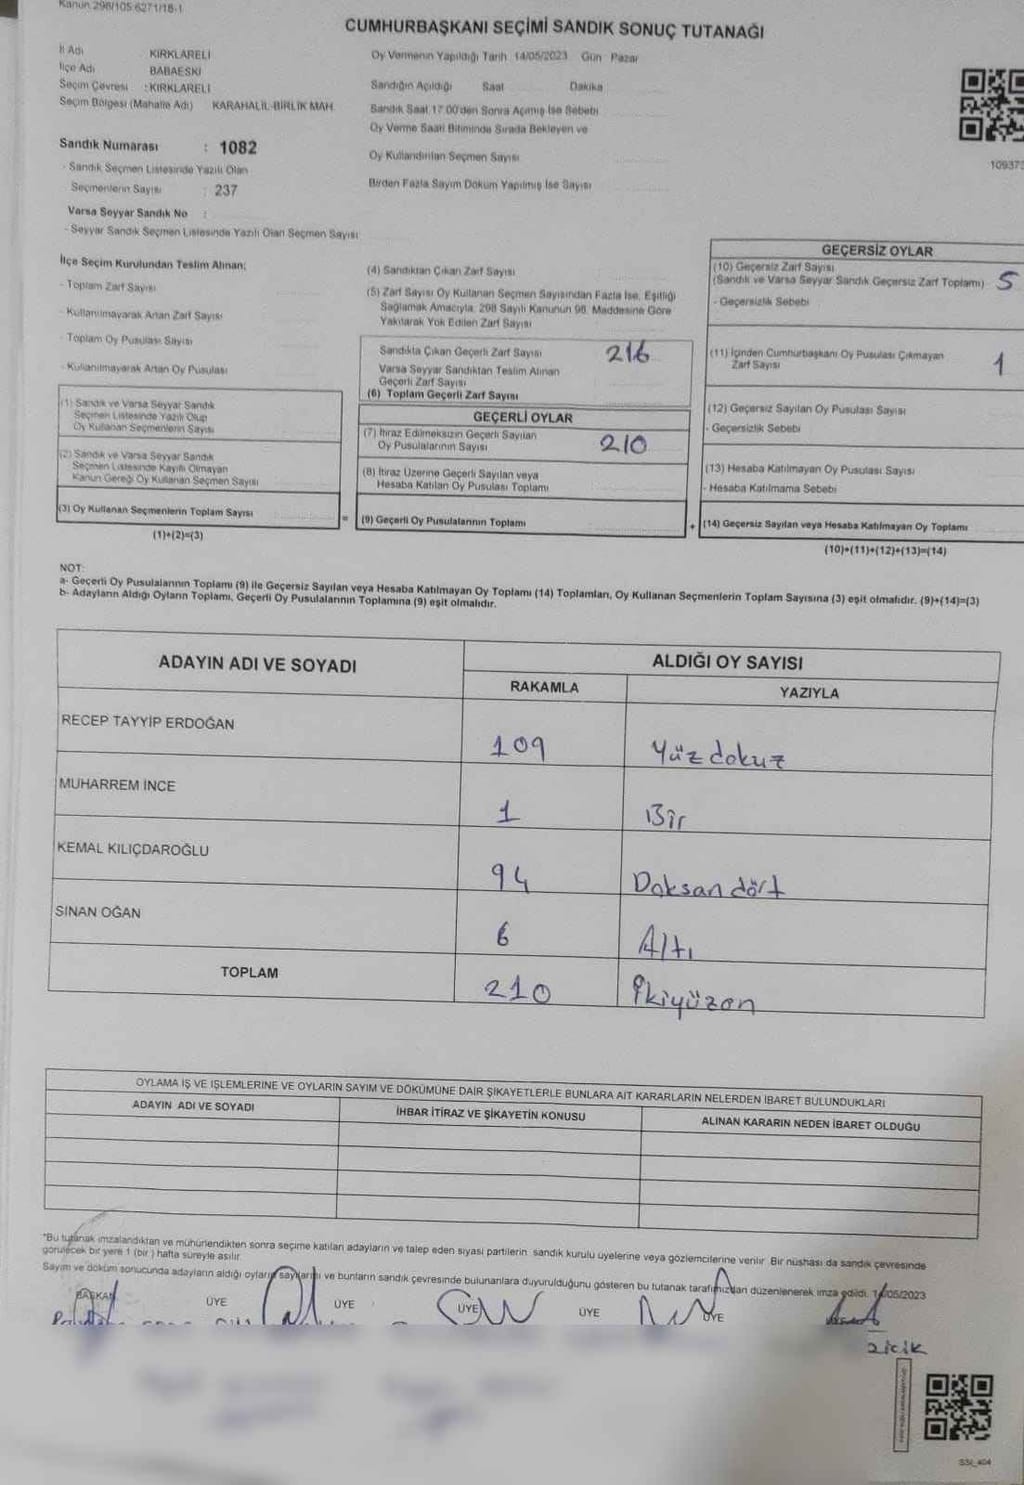 Kanun 298/105 6271/18-1
CUMHURBAŞKANI SEÇİMİ SANDIK SONUÇ TUTANAĞI
İl Adı KIRKLARELİ
İlçe Adı BABAESKİ
Seçim Çevresi : KIRKLARELİ
Seçim Bölgesi (Mahalle Adı) KARAHALİL-BİRLİK MAH.
Oy Vermenin Yapıldığı Tarih 14/05/2023 Gün Pazar
Sandığın Açıldığı Saat Dakika
Sandık Saat 17:00'den Sonra Açılmış İse Sebebi
Oy Verme Saati Bitiminde Sırada Bekleyen ve
Oy Kullandırılan Seçmen Sayısı
Birden Fazla Sayım Döküm Yapılmış İse Sayısı
Sandık Numarası : 1082
- Sandık Seçmen Listesinde Yazılı Olan
Seçmenlerin Sayısı : 237
Varsa Seyyar Sandık No :
- Seyyar Sandık Seçmen Listesinde Yazılı Olan Seçmen Sayısı
10937
İlçe Seçim Kurulundan Teslim Alınan;
- Toplam Zarf Sayısı
- Kullanılmayarak Artan Zarf Sayısı
- Toplam Oy Pusulası Sayısı
- Kullanılmayarak Artan Oy Pusulası
(1) Sandık ve Varsa Seyyar Sandık
Seçmen Listesinde Yazılı Olup
Oy Kullanan Seçmenlerin Sayısı
(2) Sandık ve Varsa Seyyar Sandık
Seçmen Listesinde Kayıtlı Olmayan
Kanun Gereği Oy Kullanan Seçmen Sayısı
(3) Oy Kullanan Seçmenlerin Toplam Sayısı
(1)+(2)=(3)
(4) Sandıktan Çıkan Zarf Sayısı
(5) Zarf Sayısı Oy Kullanan Seçmen Sayısından Fazla İse, Eşitliği
Sağlamak Amacıyla, 298 Sayılı Kanunun 98. Maddesine Göre
Yakılarak Yok Edilen Zarf Sayısı
Sandıkta Çıkan Geçerli Zarf Sayısı 216
Varsa Seyyar Sandıktan Teslim Alınan
Geçerli Zarf Sayısı
(6) Toplam Geçerli Zarf Sayısı
GEÇERLİ OYLAR
(7) İtiraz Edilmeksizin Geçerli Sayılan
Oy Pusulalarının Sayısı 210
(8) İtiraz Üzerine Geçerli Sayılan veya
Hesaba Katılan Oy Pusulası Toplamı
= (9) Geçerli Oy Pusulalarının Toplamı
GEÇERSİZ OYLAR
(10) Geçersiz Zarf Sayısı
(Sandık ve Varsa Seyyar Sandık Geçersiz Zarf Toplamı) 5
- Geçersizlik Sebebi
(11) İçinden Cumhurbaşkanı Oy Pusulası Çıkmayan
Zarf Sayısı 1
(12) Geçersiz Sayılan Oy Pusulası Sayısı
- Geçersizlik Sebebi
(13) Hesaba Katılmayan Oy Pusulası Sayısı
- Hesaba Katılmama Sebebi
+ (14) Geçersiz Sayılan veya Hesaba Katılmayan Oy Toplamı
(10)+(11)+(12)+(13)=(14)
NOT:
a- Geçerli Oy Pusulalarının Toplamı (9) ile Geçersiz Sayılan veya Hesaba Katılmayan Oy Toplamı (14) Toplamları, Oy Kullanan Seçmenlerin Toplam Sayısına (3) eşit olmalıdır. (9)+(14)=(3)
b- Adayların Aldığı Oyların Toplamı, Geçerli Oy Pusulalarının Toplamına (9) eşit olmalıdır.
ADAYIN ADI VE SOYADI ALDIĞI OY SAYISI
RAKAMLA YAZIYLA
RECEP TAYYİP ERDOĞAN 109 Yüz dokuz
MUHARREM İNCE 1 Bir
KEMAL KILIÇDAROĞLU 94 Doksan dört
SİNAN OĞAN 6 Altı
TOPLAM 210 İkiyüzon
OYLAMA İŞ VE İŞLEMLERİNE VE OYLARIN SAYIM VE DÖKÜMÜNE DAİR ŞİKAYETLERLE BUNLARA AİT KARARLARIN NELERDEN İBARET BULUNDUKLARI
ADAYIN ADI VE SOYADI İHBAR İTİRAZ VE ŞİKAYETİN KONUSU ALINAN KARARIN NEDEN İBARET OLDUĞU
*Bu tutanak imzalandıktan ve mühürlendikten sonra seçime katılan adayların ve talep eden siyasi partilerin sandık kurulu üyelerine veya gözlemcilerine verilir. Bir nüshası da sandık çevresinde
görülecek bir yere 1 (bir) hafta süreyle asılır.
Sayım ve döküm sonucunda adayların aldığı oyların sayılarını ve bunların sandık çevresinde bulunanlara duyurulduğunu gösteren bu tutanak tarafımızdan düzenlenerek imza edildi. 14/05/2023
BAŞKAN ÜYE ÜYE ÜYE ÜYE ÜYE